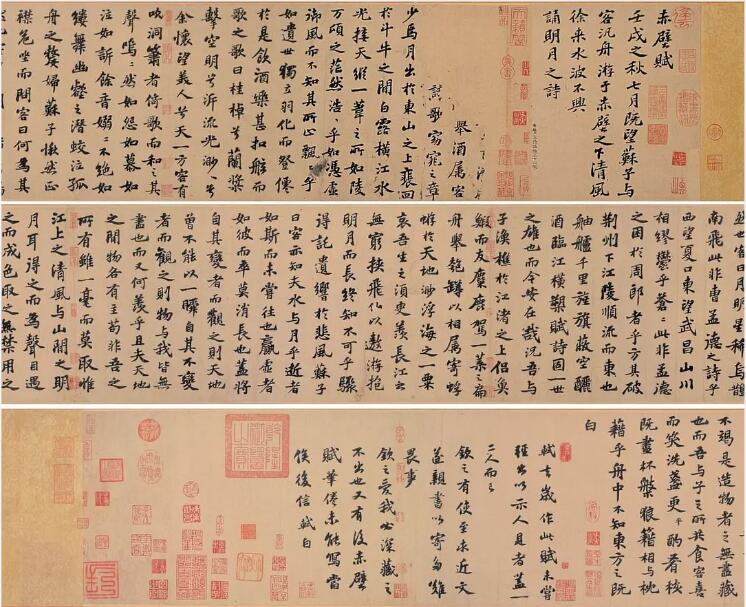 赤壁賦
壬戌之秋七月既望蘇子与
客汎舟游于赤壁之下清風
徐来水波不興
誦明月之詩
舉酒属客
歌窈窕之章
少焉月出於東山之上裵回
於斗牛之間白露横江水
光接天縱一葦之所如陵
万頃之茫然浩浩乎如馮虛
御風而不知其所止飄飄乎
如遺世獨立羽化而登僊
於是飲酒樂甚扣舷而
歌之歌曰桂棹兮蘭槳
擊空明兮泝流光渺渺兮
余懷望美人兮天一方客有
吹洞簫者倚歌而和之其
聲嗚嗚然如怨如慕如
泣如訴餘音嫋嫋不絶如
縷舞幽壑之潜蛟泣孤
舟之嫠婦蘇子愀然正
襟危坐而問客曰何為其
然也客曰月明星稀烏鵲
南飛此非曹孟德之詩乎
西望夏口東望武昌山川
相繆鬱乎蒼蒼此非孟德
之困於周郎者乎方其破
荊州下江陵順流而東也
舳艫千里旌旗蔽空釃
酒臨江横槊賦詩固一世
之雄也而今安在哉況吾與
子漁樵於江渚之上侶魚
鰕而友麋鹿駕一葉之扁
舟舉匏罇以相属寄蜉
蝣於天地渺浮海之一粟
哀吾生之須臾羨長江之
無窮挾飛仙以遨游抱
明月而長終知不可乎驟
得託遺響於悲風蘇子
曰客亦知夫水與月乎逝者
如斯而未嘗往也贏虛者
如彼而卒莫消長也蓋將
自其變者而觀之則天地
曾不能以一瞬自其不變
者而觀之則物與我皆無
盡也而又何羨乎且夫天地
之間物各有主苟非吾之
所有雖一毫而莫取惟
江上之清風與山間之明
月耳得之而為聲目遇
之而成色取之無禁用之
不竭是造物者之無盡藏
也而吾与子之所共食客喜
而笑洗盞更平酌肴核
既盡杯槃狼藉相与枕
藉乎舟中不知東方之既
白
軾去歲作此賦未嘗
輕出以示人見者蓋一
二人而已
欽之有使至求近文
遂親書以寄多難
畏事
欽之愛我必深藏之
不出也又有後赤壁
賦筆倦未能寫當
俟後信軾白